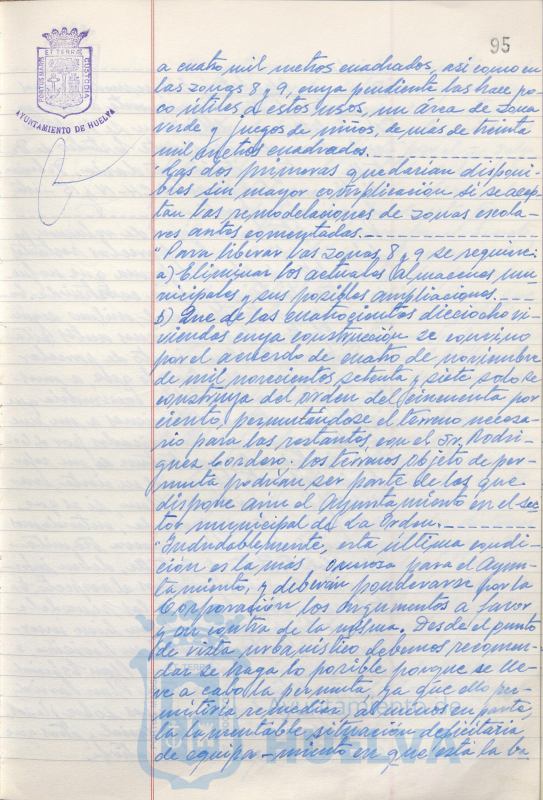 95
PORTUS MARIS ET TERRAE CUSTODIA
AYUNTAMIENTO DE HUELVA
a cuatro mil metros cuadrados, así como en
las zonas 8 y 9, cuya pendiente las hace po-
co útiles a estos usos, un área de zona
verde y juegos de niños, de más de treinta
mil metros cuadrados.
Las dos primeras quedarían disponi-
bles sin mayor complicación si se acep-
tan las remodelaciones de zonas escola-
res antes comentadas.
"Para liberar las zonas 8 y 9 se requiere:
a) Eliminar los actuales almacenes mu-
nicipales y sus posibles ampliaciones.
b) Que de las cuatrocientas dieciocho vi-
viendas cuya construcción se convino
por el acuerdo de cuatro de noviembre
de mil novecientos setenta y siete solo se
construya del orden del cincuenta por
ciento, permutándose el terreno necesa-
rio para las restantes, con el Sr. Rodrí-
guez Cordero. Los terrenos objeto de per-
muta podrían ser parte de los que
dispone aún el Ayuntamiento en el sec-
tor municipal de La Orden.
"Indudablemente, esta última condi-
ción es la más onerosa para el Ayun-
tamiento, y deberán ponderarse por la
Corporación los argumentos a favor
y en contra de la misma. Desde el punto
de vista urbanístico debemos recomen-
dar se haga lo posible porque se lle-
ve a cabo la permuta, ya que ello per-
mitiría remediar al menos en parte,
la lamentable situación deficitaria
de equipa-miento en que está la ba
HUELVA